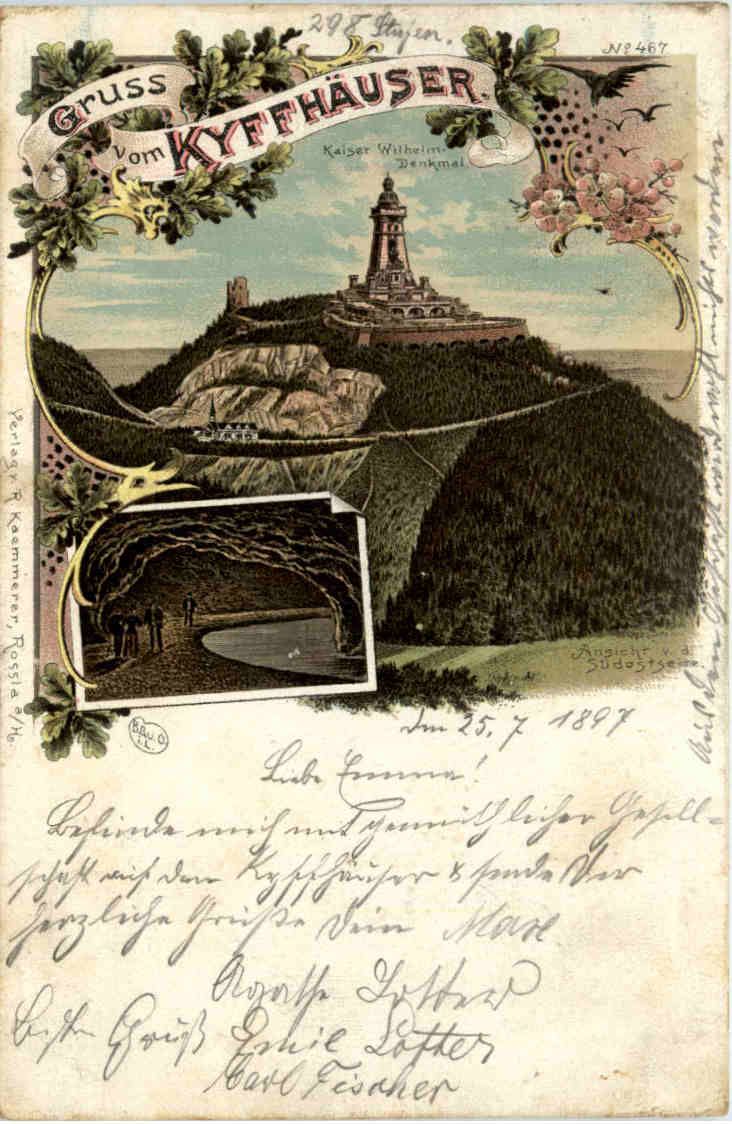 298 Stufen.
No 467
Gruss
vom KYFFHÄUSER.
Kaiser Wilhelm-
Denkmal.
Verlag v. R. Kaemmerer, Rossla a/H.
Ansicht v. d.
Südostseite
B.&u.O.
i.L.
Den 25. 7 1897
Liebe Emma!
Befinde mich mit gemüthlicher Gesell-
schaft auf dem Kyffhäuser & sende Dir
herzliche Grüße Dein Max
Agathe Lotter
Beste Gruß Emil Lotter
Carl Fischer
Aus dem Geschäft wird wohl nichts werden